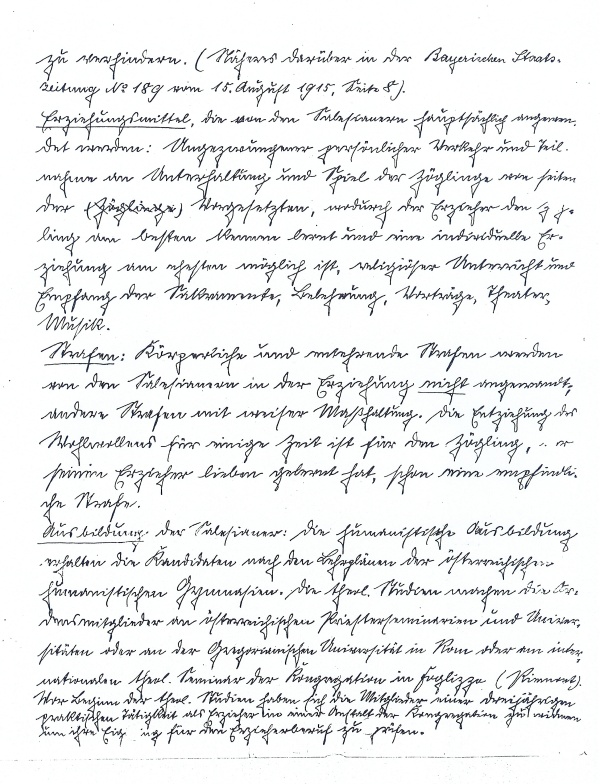 zu verhindern. (Näheres darüber in der Bayerischen Staats-
zeitung № 189 vom 15. August 1915, Seite 8).
Erziehungsmittel, die von den Salesianern hauptsächlich angewen-
det werden: Ungezwungener persönlicher Verkehr und Teil-
nahme an Unterhaltung und Spiel der Zöglinge von seiten
der (Zöglinge) Vorgesetzten, wodurch der Erzieher den Zög-
ling am besten kennen lernt und eine individuelle Er-
ziehung am ehesten möglich ist, religiöser Unterricht und
Empfang der Sakramente, Belehrung, Vorträge, Theater,
Musik.
Strafen: Körperliche und entehrende Strafen werden
von den Salesianern in der Erziehung nicht angewandt,
andere Strafen mit weiser Maßhaltung. Die Entziehung des
Wohlwollens für einige Zeit ist für den Zögling, er
seinen Erzieher lieben gelernt hat, schon eine empfindli-
che Strafe.
Ausbildung der Salesianer: Die humanistische Ausbildung
erhalten die Kandidaten nach den Lehrplänen der österreichischen
humanistischen Gymnasien. Die theol. Studien machen die Or-
densmitglieder an österreichischen Priesterseminarien und Univer-
sitäten oder an der Gregorianischen Universität in Rom oder am inter-
nationalen theol. Seminar der Kongregation in Foglizzo (Piemont).
Vor Beginn der theol. Studien haben sich die Mitglieder einer dreijährigen
praktischen Tätigkeit als Erzieher in einer Anstalt der Kongregation zu widmen
um ihre Eig ng für den Erzieherberuf zu prüfen.